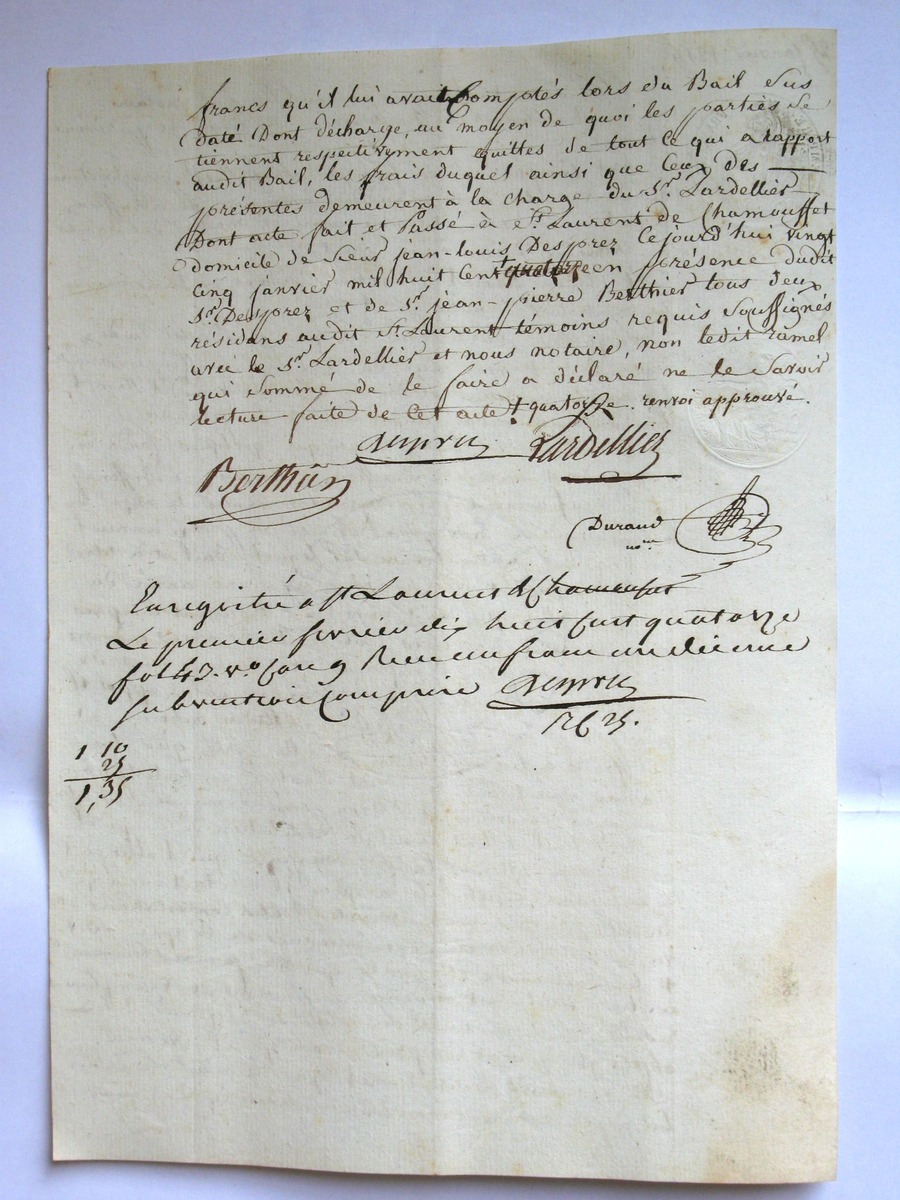 francs qu'il lui avait Comptés lors du Bail sus
daté Dont décharge, au moyen de quoi les parties se
tiennent respectivement quittes de tout ce qui a rapport
audit Bail, les frais duquel ainsi que Ceux des
présentes demeurent à la charge du Sr. Lardellier
Dont acte fait et Passé à St. Laurent de Chamousset
domicile de Sieur jean-louis Desprez Cejourd'hui vingt
cinq janvier mil huit Cent + quatorze en présence dudit
Sr. Desprez et de Sr. jean-pierre Berthier tous deux
résidans audit St. Laurent témoins requis soussignés
avec le Sr. Lardellier et nous notaire, non ledit ramel
qui sommé de le faire a déclaré ne le Savoir
lecture faite de Cet acte + quatorze. renvoi approuvé.
Desprez Lardellier
Berthier
Durand
nore
Enregistré a St Laurent d Chamousset
Le premier fevrier dix huit Cent quatorze
fol 43. vo Case 9 Recu un franc un decime
subvention Comprise Desprez
25.
1 10
25
1,35